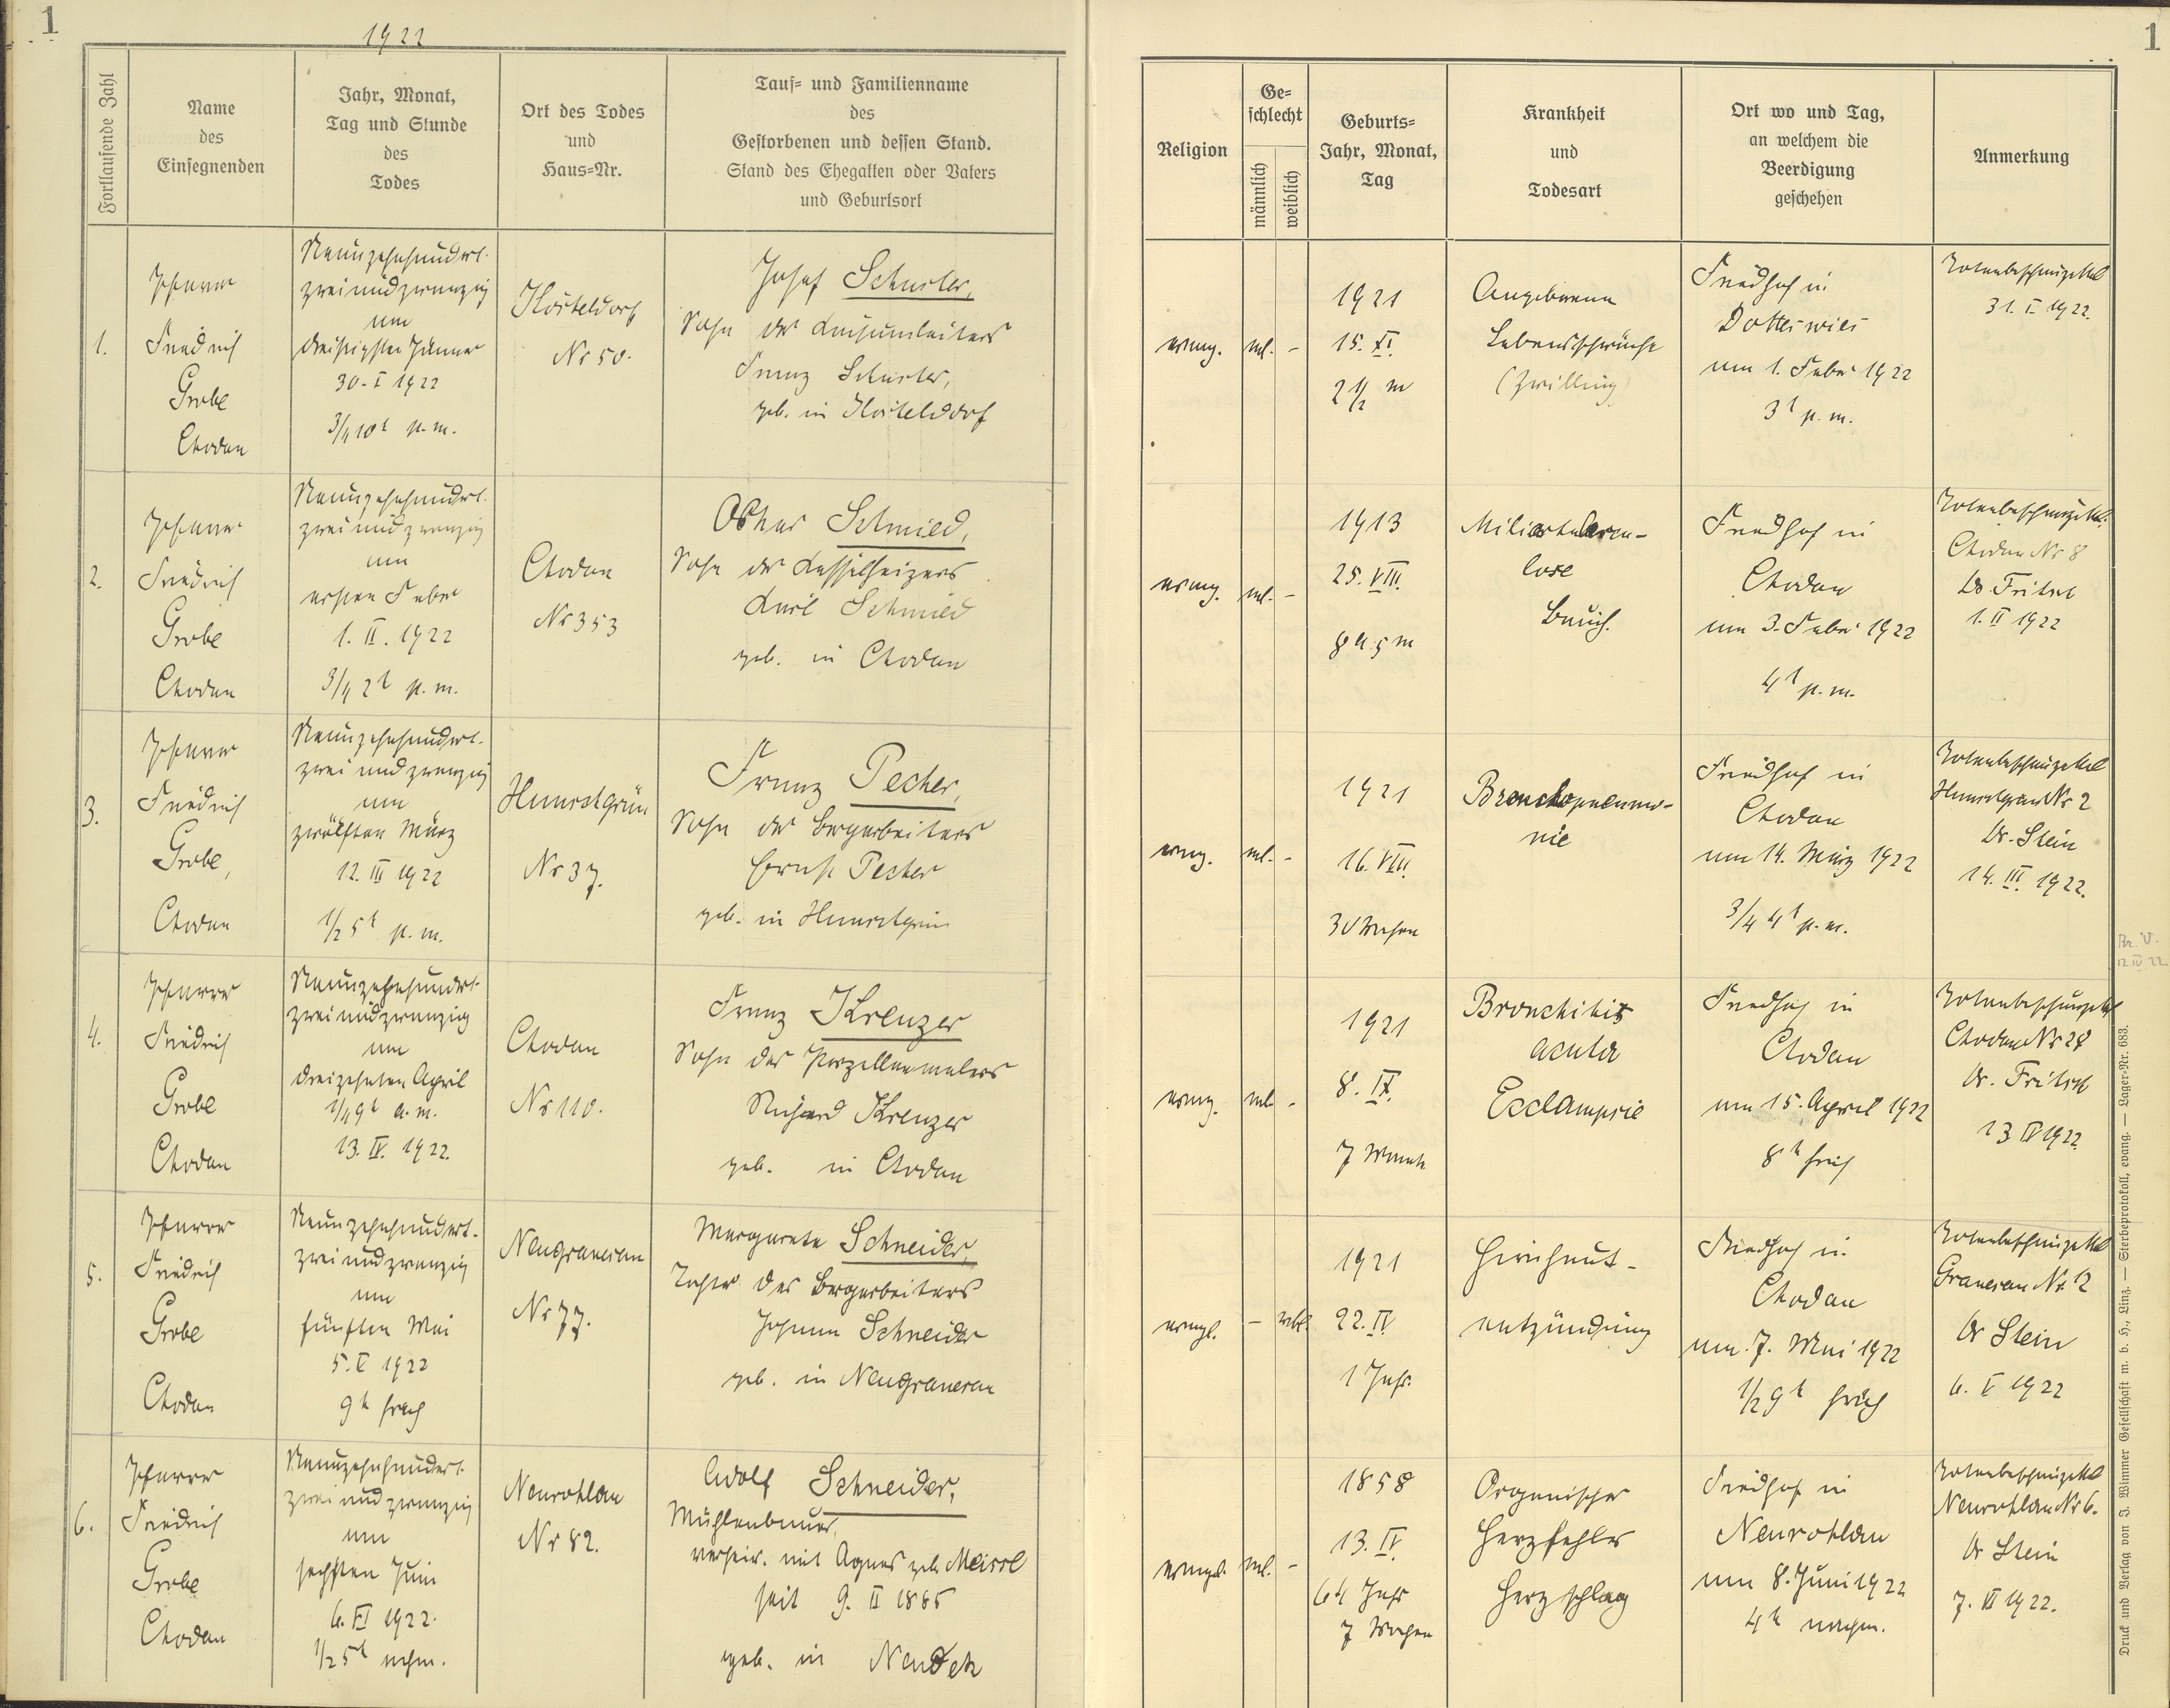 1
1922
Fortlaufende Zahl
Name
des
Einsegnenden
Jahr, Monat,
Tag und Stunde
des
Todes
Ort des Todes
und
Haus=Nr.
Tauf= und Familienname
des
Gestorbenen und dessen Stand.
Stand des Ehegatten oder Vaters
und Geburtsort
1.
Pfarrer
Friedrich
Grobe
Chodau
Neunzehnhundert-
zweiundzwanzig
am
dreißigsten Jänner
30. I 1922
3/4 10h p. m.
Nr 50.
Josef Schuster,
Sohn des
Franz Schuster,
geb. in
2.
Pfarrer
Friedrich
Grobe
Chodau
Neunzehnhundert-
zweiundzwanzig
am
ersten Feber
1. II. 1922
3/4 2h p. m.
Chodau
Nr 353
Oskar Schmied,
Sohn des Kesselheizers
Karl Schmied
geb. in Chodau
3.
Pfarrer
Friedrich
Grobe,
Chodau
Neunzehnhundert-
zweiundzwanzig
am
zwölften März
12. III 1922
1/2 5h p. m.
Nr 37.
Franz Pecher,
Sohn des Bergarbeiters
Ernst Pecher
geb. in
4.
Pfarrer
Friedrich
Grobe
Chodau
Neunzehnhundert-
zweiundzwanzig
am
dreizehnten April
1/4 9h a. m.
13. IV. 1922.
Chodau
Nr 110.
Franz Krenzer
Sohn des Porzellanmalers
Richard Krenzer
geb. in Chodau
5.
Pfarrer
Friedrich
Grobe
Chodau
Neunzehnhundert-
zweiundzwanzig
am
fünften Mai
5. V 1922
9h früh
Neugranesau
Nr 77.
Margareta Schneider,
Tochter des Bergarbeiters
Johann Schneider
geb. in Neugranesau
6.
Pfarrer
Friedrich
Grobe
Chodau
Neunzehnhundert-
zweiundzwanzig
am
sechsten Juni
6. VI 1922.
1/2 5h nchm.
Neurohlau
Nr 82.
Adolf Schneider,
Mühlenbauer,
verheir. mit Agnes geb. Meissl
seit 9. II 1885
geb. in Neudek
1
Religion
Ge=
schlecht
männlich
weiblich
Geburts=
Jahr, Monat,
Tag
Krankheit
und
Todesart
Ort wo und Tag,
an welchem die
Beerdigung
geschehen
Anmerkung
evang.
ml. -
1921
15. XI.
2 1/2 m
Angeborene
Lebensschwäche
(Zwilling)
Friedhof in
Dotterwies
am 1. Feber 1922
3h p. m.
Totenbeschauzettel
31. I 1922.
evang.
ml. -
1913
25. VIII.
8 a. 5 m
Miliartuberculose
Friedhof in
Chodau
am 3. Feber 1922
4h p. m.
Totenbeschauzettel
Chodau Nr 8
Dr. Fritsch
1. II 1922
evang.
ml. -
1921
16. VIII.
30 Wochen
Bronchopneumo-
nie
Friedhof in
Chodau
am 14. März 1922
3/4 4h p. m.
Totenbeschauzettel
Nr 2
Dr. Stein
14. III. 1922.
12 IV 22
evang.
ml. -
1921
8. IX.
7 Monate
Bronchitis
acuta
Ecclampsie
Friedhof in
Chodau
am 15. April 1922
8h früh
Totenbeschauzettel
Chodau Nr 28
Dr. Fritsch
13 IV 1922.
evangl.
- wbl.
1921
22. IV
1 Jahr.
Hirnhaut-
entzündung
Friedhof in
Chodau
am 7. Mai 1922
1/2 9h früh
Totenbeschauzettel
Granesau Nr 12
Dr Stein
6. V 1922
evangl.
ml. -
1858
13. IV.
64 Jahr
7 Wochen
Organischer
Herzfehler
Herzschlag
Friedhof in
Neurohlau
am 8. Juni 1922
4h nachm.
Totenbeschauzettel
Neurohlau Nr 6.
Dr Stein
7. VI 1922.
Druck und Verlag von J. Wimmer Gesellschaft m. b. H., Linz. — Sterbeprotokoll, evang. — Lager=Nr. 683.